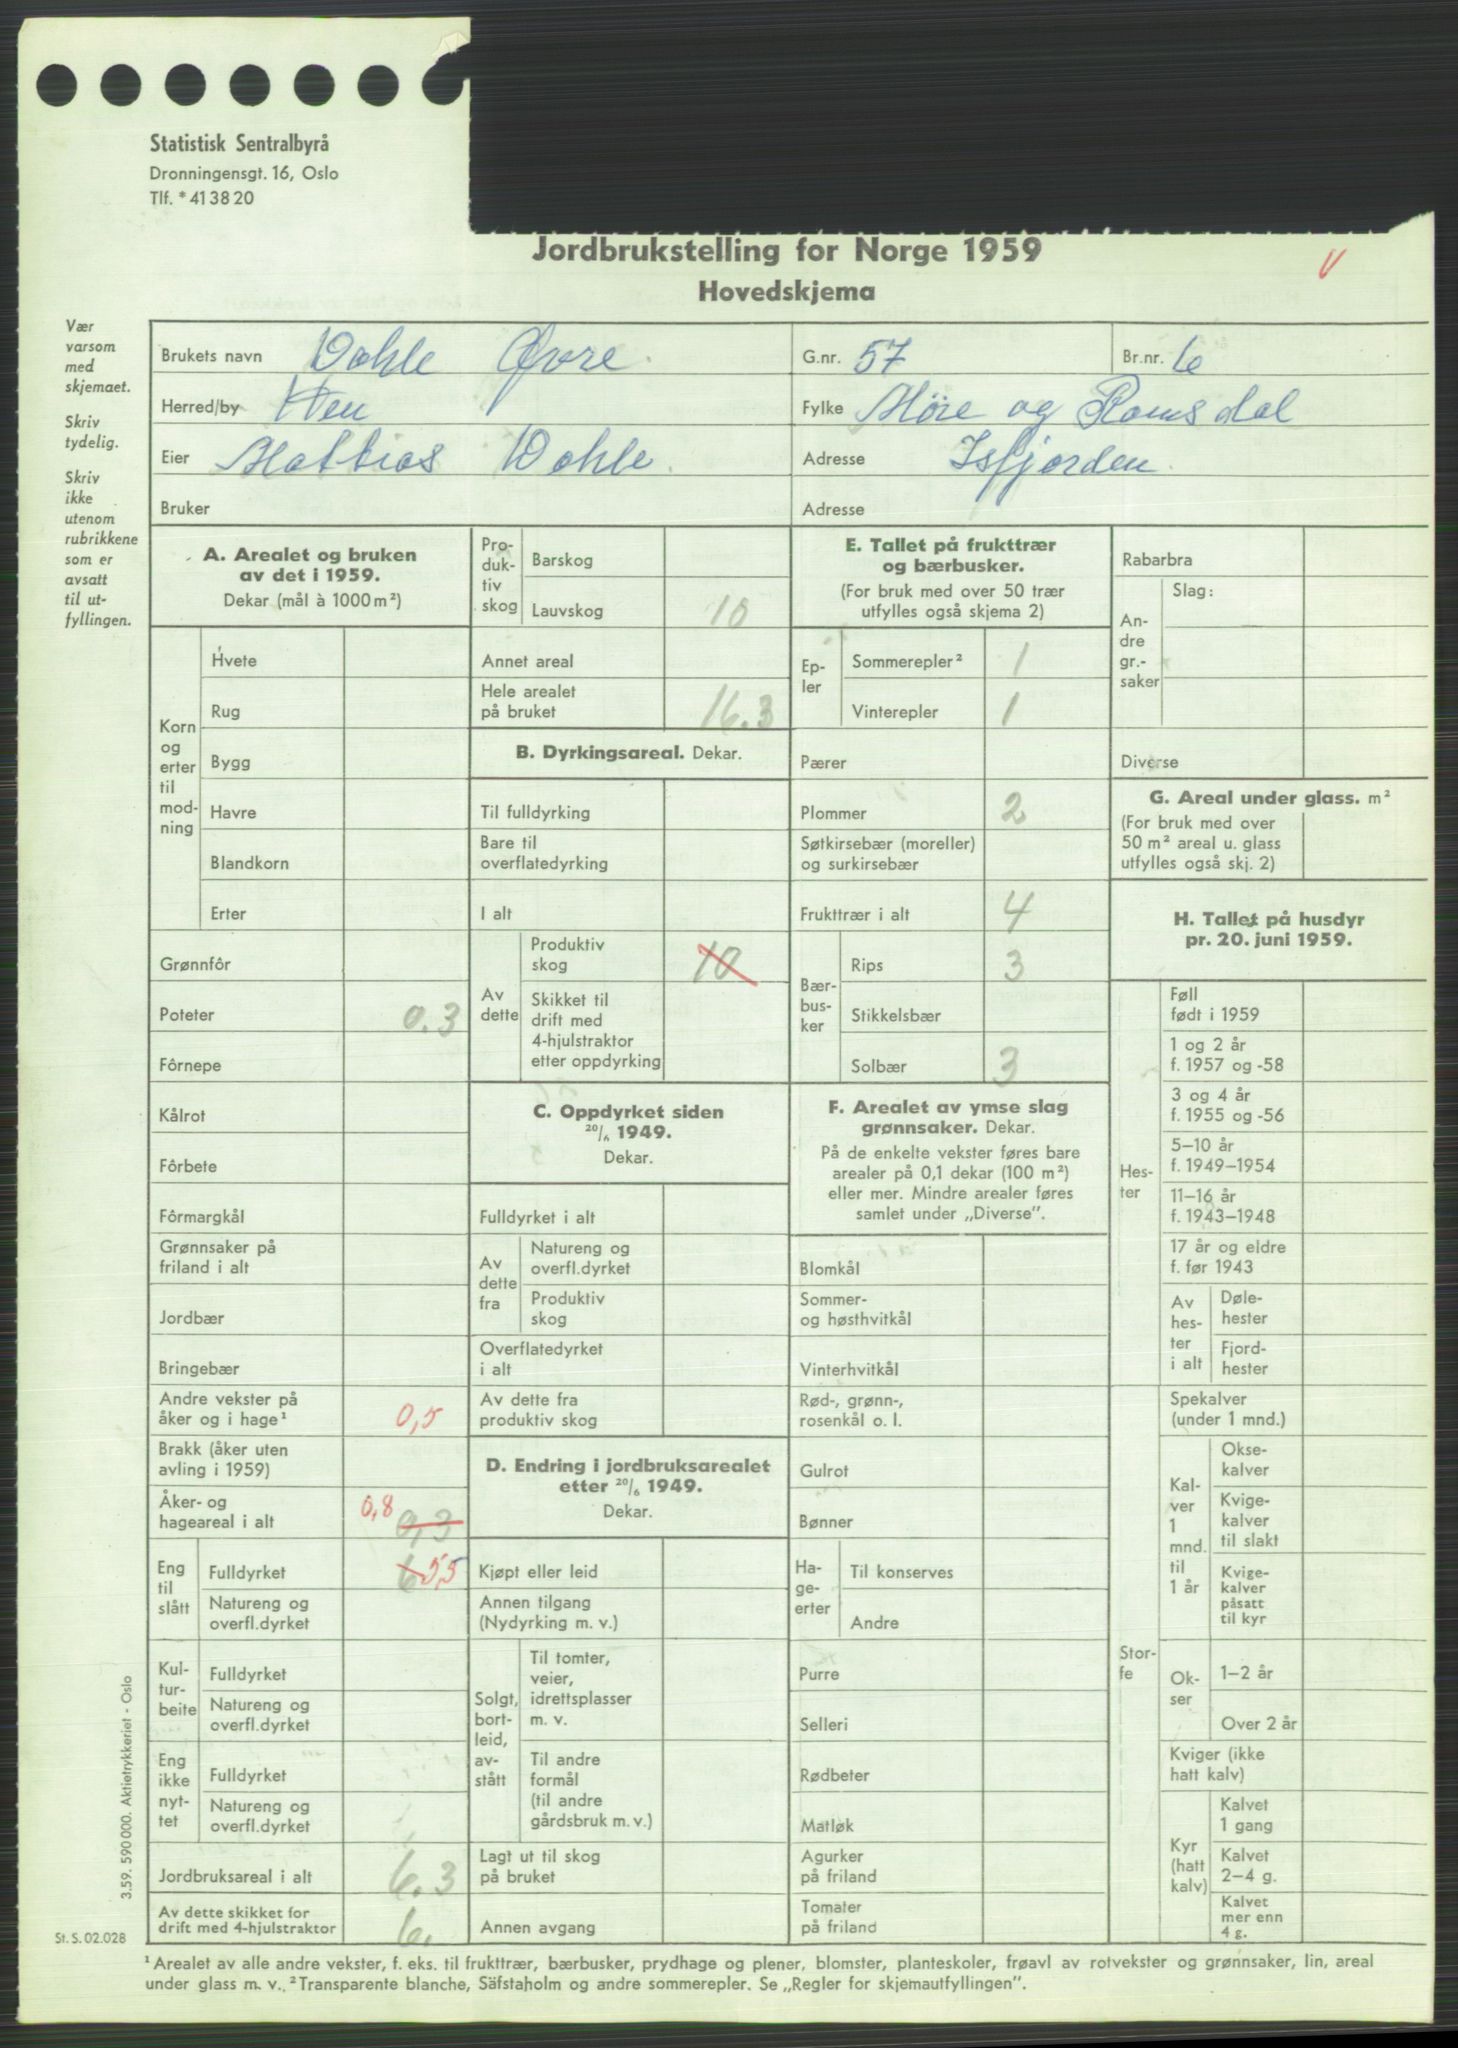 Statistisk Sentralbyrå
Dronningensgt. 16, Oslo
Tlf. * 41 38 20
Jordbrukstelling for Norge 1959
Hovedskjema
V
Vær
varsom
med
skjemaet.
Skriv
tydelig.
Skriv
ikke
utenom
rubrikkene
som er
avsatt
til ut-
fyllingen.
Brukets navn Dahle Øvre.
G.nr. 57
Br.nr. 6
Herred/by Hen
Fylke Møre og Romsdal
Eier Mattias Dahle.
Adresse Isfjorden.
Bruker
Adresse
A. Arealet og bruken
av det i 1959.
Dekar (mål à 1000 m²)
Korn
og
erter
til
mod-
ning
Hvete
Rug
Bygg
Havre
Blandkorn
Erter
Grønnfôr
Poteter 0.3
Fôrnepe
Kålrot
Fôrbete
Fôrmargkål
Grønnsaker på
friland i alt
Jordbær
Bringebær
Andre vekster på
åker og i hage¹ 0,5
Brakk (åker uten
avling i 1959)
Åker- og
hageareal i alt 0,8 0,3
Eng
til
slått
Fulldyrket 6 5,5
Natureng og
overfl.dyrket
Kul-
tur-
beite
Fulldyrket
Natureng og
overfl.dyrket
Eng
ikke
nyt-
tet
Fulldyrket
Natureng og
overfl.dyrket
Jordbruksareal i alt 6.3
Av dette skikket for
drift med 4-hjulstraktor 6.
Pro-
duk-
tiv
skog
Barskog
Lauvskog 10
Annet areal
Hele arealet
på bruket 16.3
B. Dyrkingsareal. Dekar.
Til fulldyrking
Bare til
overflatedyrking
I alt
Av
dette
Produktiv
skog 10
Skikket til
drift med
4-hjulstraktor
etter oppdyrking
C. Oppdyrket siden
20/6 1949.
Dekar.
Fulldyrket i alt
Av
dette
fra
Natureng og
overfl.dyrket
Produktiv
skog
Overflatedyrket
i alt
Av dette fra
produktiv skog
D. Endring i jordbruksarealet
etter 20/6 1949.
Dekar.
Kjøpt eller leid
Annen tilgang
(Nydyrking m. v.)
Solgt,
bort-
leid,
av-
stått
Til tomter,
veier,
idrettsplasser
m. v.
Til andre
formål
(til andre
gårdsbruk m. v.)
Lagt ut til skog
på bruket
Annen avgang
E. Tallet på frukttrær
og bærbusker.
(For bruk med over 50 trær
utfylles også skjema 2)
Ep-
ler
Sommerepler² 1
Vinterepler 1
Pærer
Plommer 2
Søtkirsebær (moreller)
og surkirsebær
Frukttrær i alt 4
Bær-
bus-
ker
Rips 3
Stikkelsbær
Solbær 3
F. Arealet av ymse slag
grønnsaker. Dekar.
På de enkelte vekster føres bare
arealer på 0,1 dekar (100 m²)
eller mer. Mindre arealer føres
samlet under „Diverse”.
Blomkål
Sommer-
og høsthvitkål
Vinterhvitkål
Rød-, grønn-,
rosenkål o. l.
Gulrot
Bønner
Ha-
ge-
erter
Til konserves
Andre
Purre
Selleri
Rødbeter
Matløk
Agurker
på friland
Tomater
på friland
Rabarbra
An-
dre
gr.-
saker
Slag:
Diverse
G. Areal under glass. m²
(For bruk med over
50 m² areal u. glass
utfylles også skj. 2)
H. Tallet på husdyr
pr. 20. juni 1959.
Hes-
ter
Føll
født i 1959
1 og 2 år
f. 1957 og -58
3 og 4 år
f. 1955 og -56
5–10 år
f. 1949–1954
11–16 år
f. 1943–1948
17 år og eldre
f. før 1943
Av
hes-
ter
i alt
Døle-
hester
Fjord-
hester
Stor-
fe
Spekalver
(under 1 mnd.)
Kal-
ver
1
mnd.
til
1 år
Okse-
kalver
Kvige-
kalver
til slakt
Kvige-
kalver
påsatt
til kyr
Ok-
ser
1–2 år
Over 2 år
Kviger (ikke
hatt kalv)
Kyr
(hatt
kalv)
Kalvet
1 gang
Kalvet
2–4 g.
Kalvet
mer enn
4 g.
3.59. 590 000. Aktietrykkeriet - Oslo
St. S. 02.028
¹ Arealet av alle andre vekster, f. eks. til frukttrær, bærbusker, prydhage og plener, blomster, planteskoler, frøavl av rotvekster og grønnsaker, lin, areal
under glass m. v. ² Transparente blanche, Säfstaholm og andre sommerepler. Se „Regler for skjemautfyllingen”.